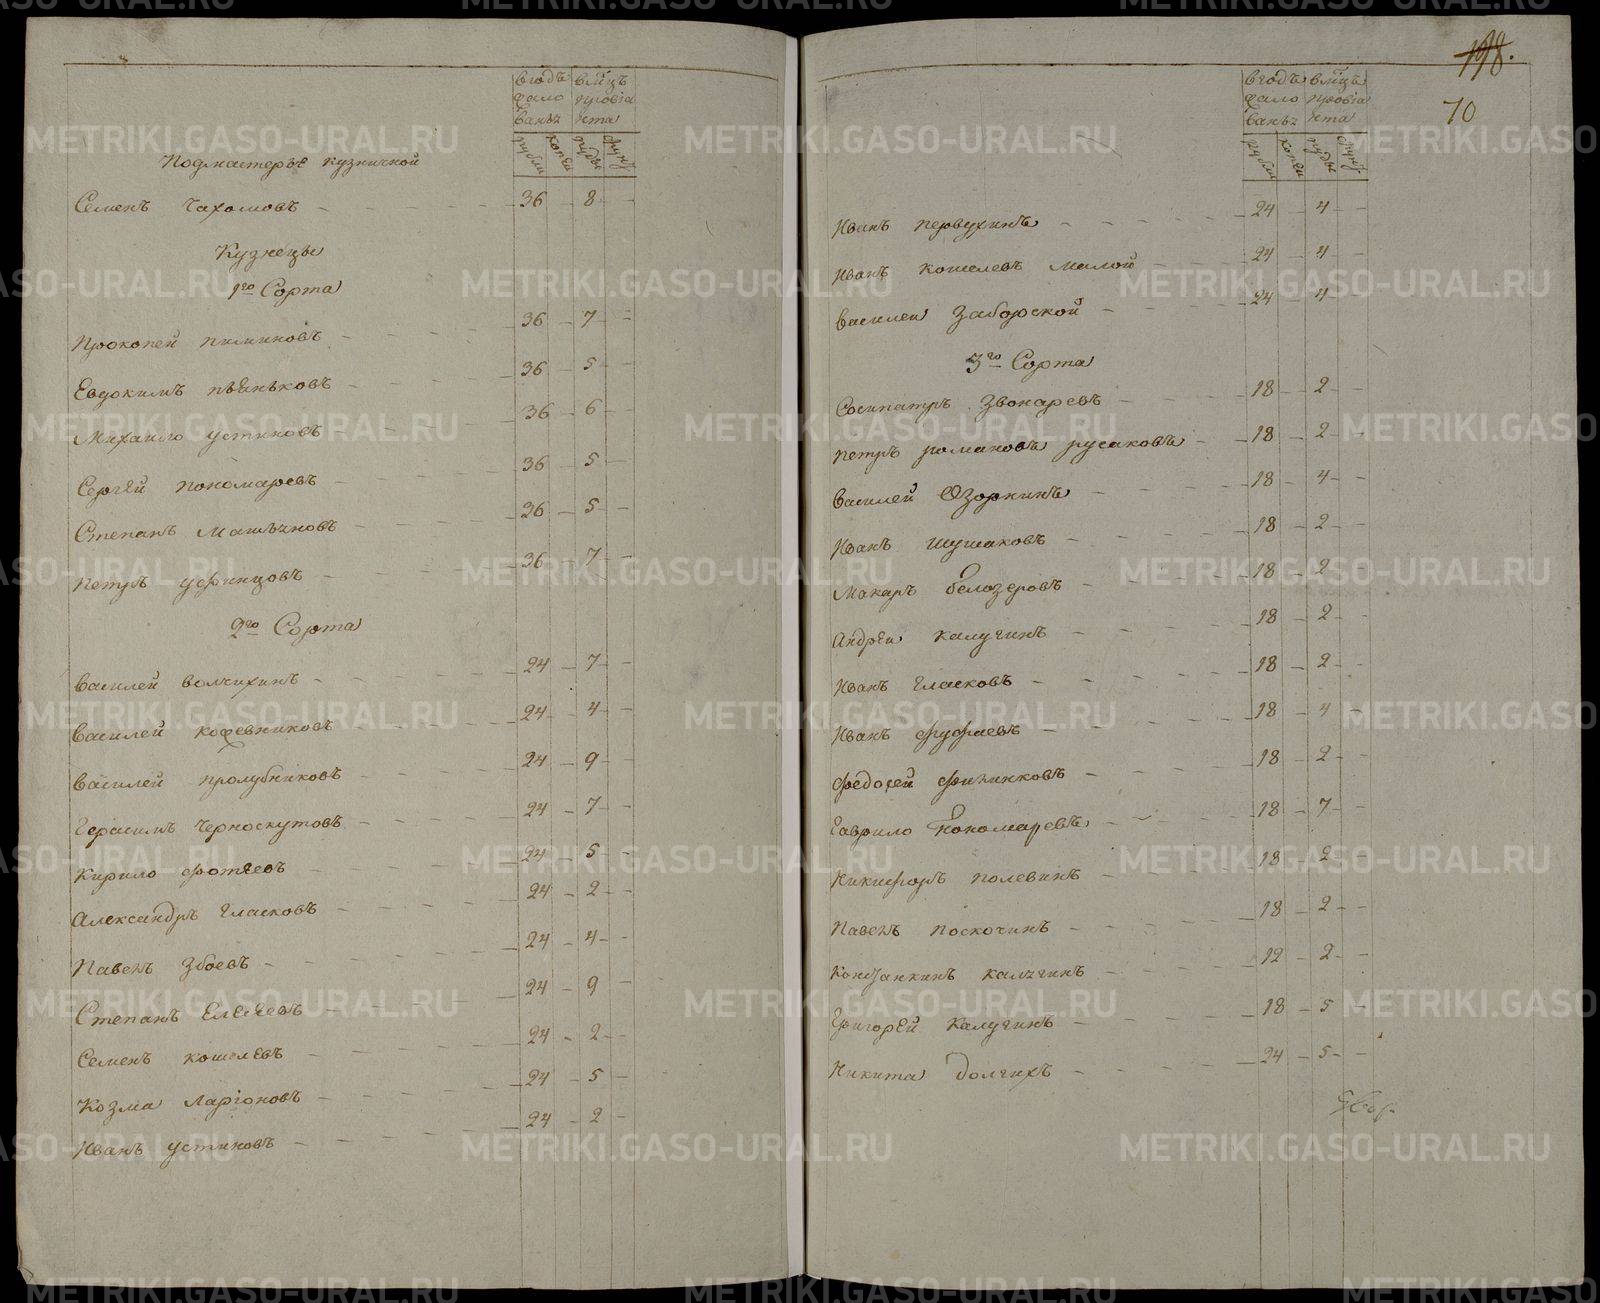 въ годъ въ м҃цъ
жало провiа
ванья нта
рубли копеи пуды фунт
Подмастерье кузничной
Семенъ Чахомовъ 36 8
Кузнецы
1го Сорта
Прокопей пилиновъ 36 7
Евдокимъ пьянковъ 36 5
Михаило устиновъ 36 6
Сергей пономаревъ 36 5
Степанъ 36 5
Петръ уфинцовъ 36 7
2го Сорта
Василей волчихинъ 24 7
Василей кожевниковъ 24 4
Василей пролубниковъ 24 9
Герасимъ Черноскутовъ 24 7
Кирило фотеевъ 24 5
Александръ Гласковъ 24 2
Павелъ Збоевъ 24 4
Степанъ Елесеевъ 24 9
Семенъ кошелевъ 24 2
Козма Ларiоновъ 24 5
Иванъ устиновъ 24 2
198.
70
въ годъ въ м҃цъ
жало провiа
ванья нта
рубли копеи пуды фунт
Иванъ первухинъ 24 4
Иванъ кошелевъ малой 24 4
Василей Заборской 24 4
3го Сорта
Сосипатръ Звонаревъ 18 2
Петръ романовъ русаковъ 18 2
Василей Озоркинъ 18 4
Иванъ шушаковъ 18 2
Макаръ белозеровъ 18 2
Андреи калугинъ 18 2
Иванъ гласковъ 18 2
Иванъ фуфаевъ 18 4
Федосей 18 2
Гаврило Пономаревъ 18 7
Никифоръ полевинъ 18 2
Павелъ поскочинъ 18 2
калугинъ 12 2
Григорей Калугинъ 18 5
Никита Долгихъ 24 5
METRIKI.GASO-URAL.RU